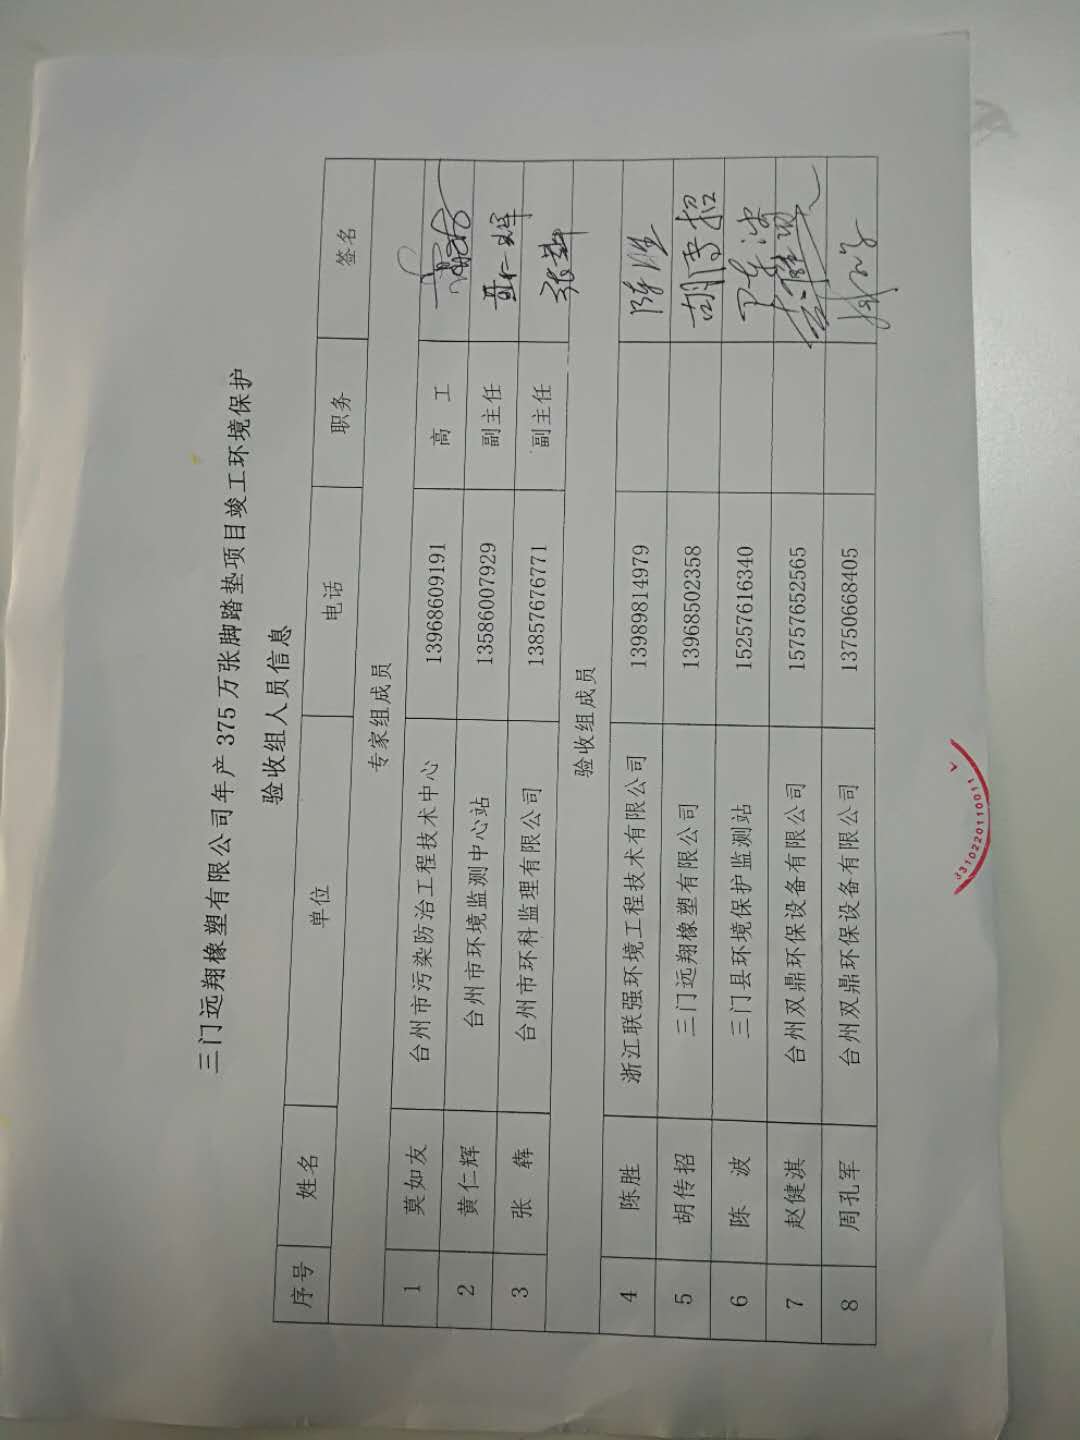 三门远翔橡塑有限公司年产 375 万张脚踏垫项目竣工环境保护
验收组人员信息
序号 姓名 单位 电话 职务 签名
专家组成员
1 莫如友 台州市污染防治工程技术中心 13968609191 高 工
2 黄仁辉 台州市环境监测中心站 13586007929 副主任 黄仁辉
3 张 犇 台州市环科监理有限公司 13857676771 副主任 张犇
验收组成员
4 陈胜 浙江联强环境工程技术有限公司 13989814979 陈胜
5 胡传招 三门远翔橡塑有限公司 13968502358 胡传招
6 陈 波 三门县环境保护监测站 15257616340
7 赵健淇 台州双鼎环保设备有限公司 15757652565
8 周孔军 台州双鼎环保设备有限公司 13750668405
3310220110011